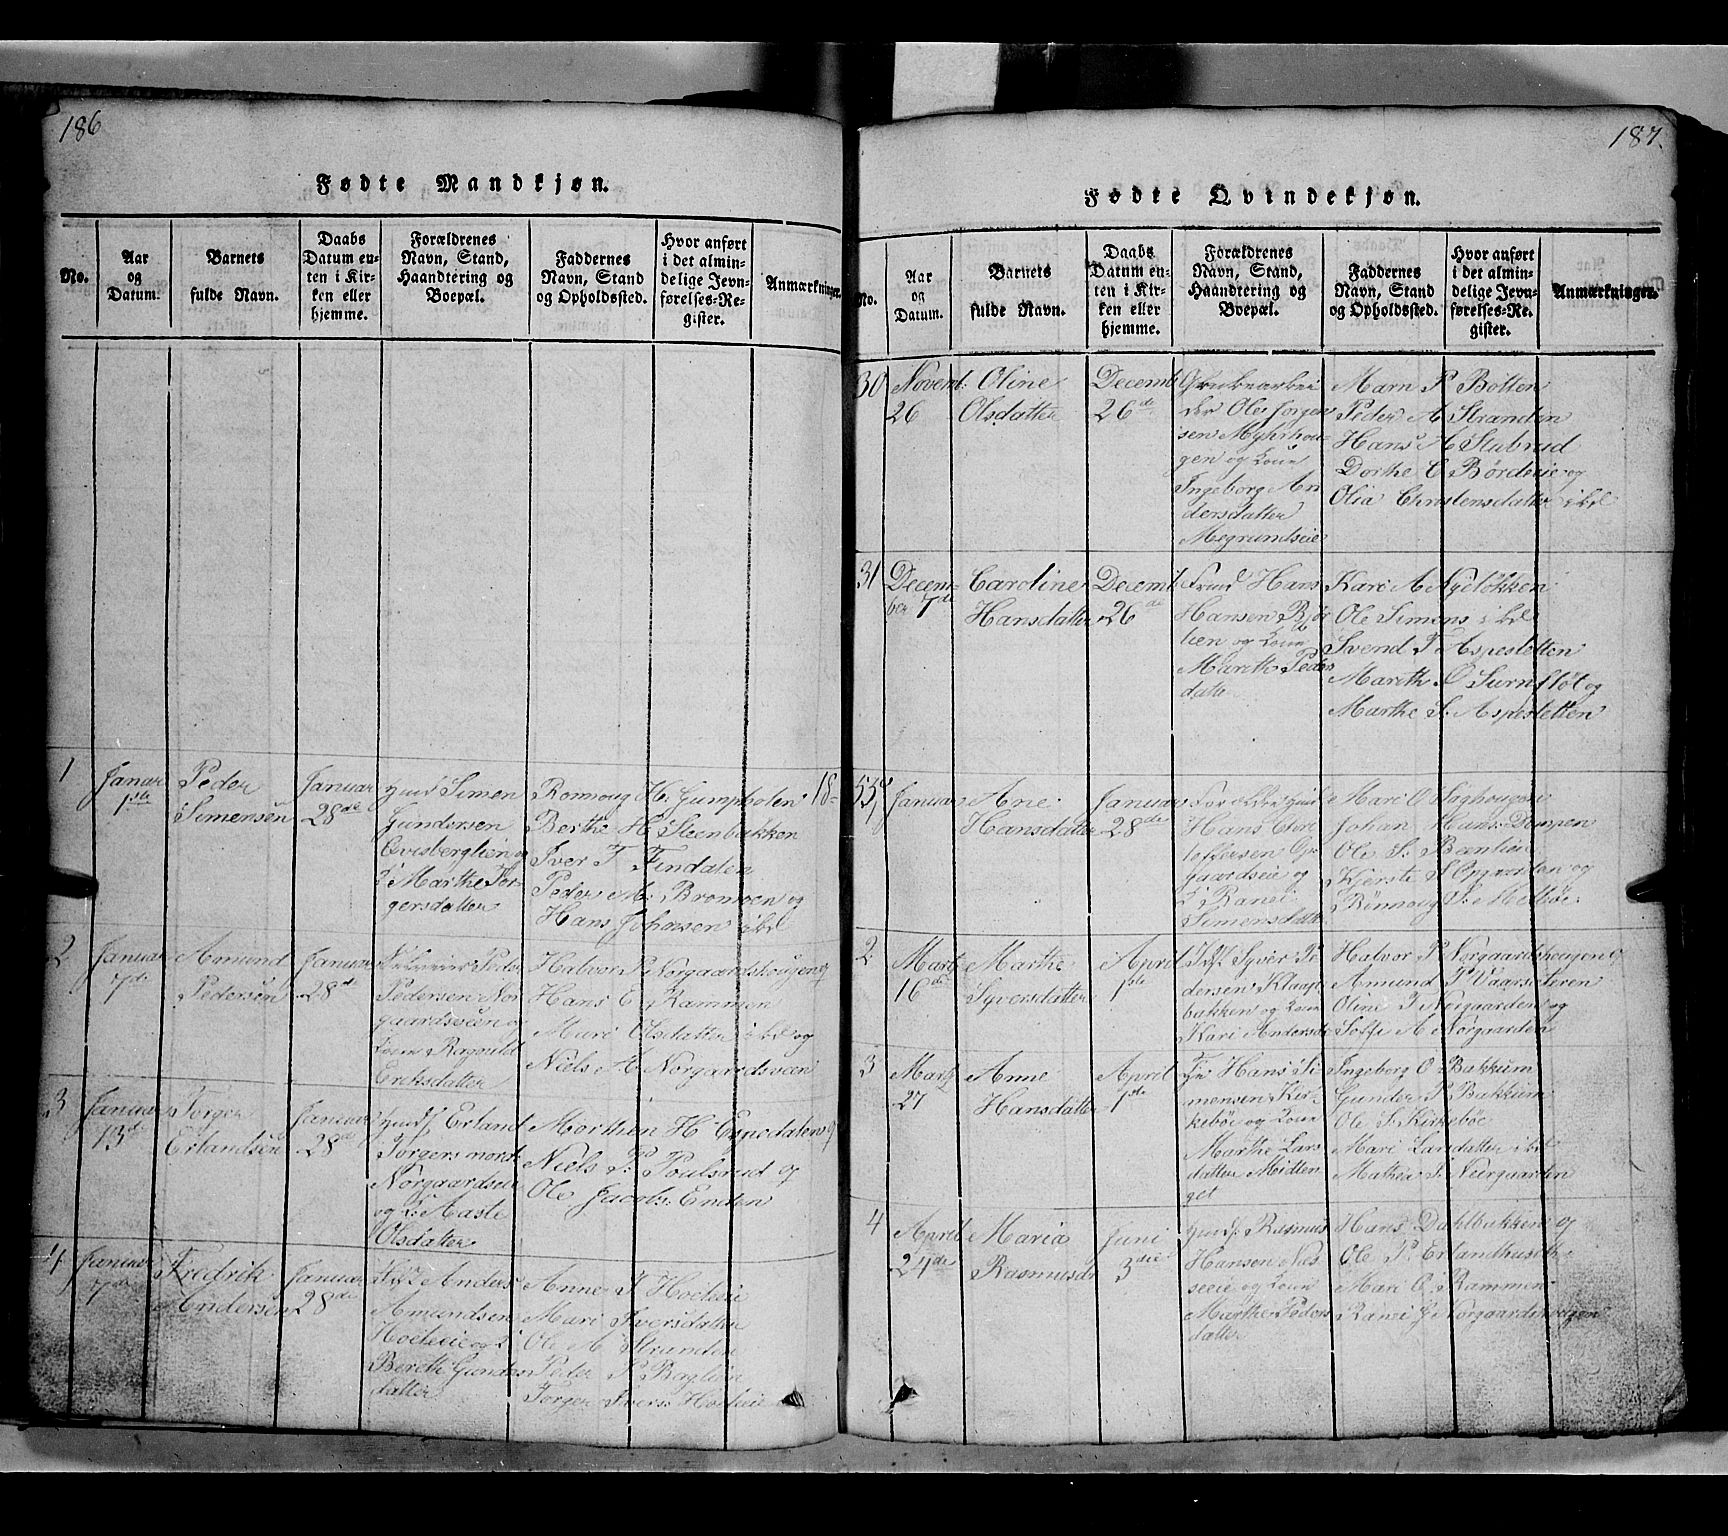 186
Fødte Mandkjøn.
No.
Aar og Datum.
Barnets fulde Navn.
Daabs Datum enten i Kirken eller hjemme.
Forældrenes Navn, Stand, Haandtering og Boepæl.
Faddernes Navn, Stand og Opholdssted.
Hvor anført i det almindelige Jevnførelses-Register.
Anmærkninger.
1
Januar
1ste
Peder
Simensen
Januar
28de
Simen
Gundersen
Qvisberglien og
Marthe Tor-
gersdatter
Ronnoug H. Gumpholen
Berthe H Steenbakken
Iver T Findalen
Peder M. Bromoen og
Hans Johnsen
2
Januar
7de
Amund
Pedersen
Januar
28de
Peder
Pedersen Nor
gaardsveen og
Ragnild
Eriksdatter
Halvor P. Norgaardshougen og
Hans E. Rammen
Mari Olsdatter ibd og
Niels A Norgaardsveen
3
Januar
13de
Torger
Erlandsen
Januar
28de
Erland
Torgers
Norgaardseie
og Aaste
Olsdatter
Morthen H
Niels P. Poulsrud og
Ole Jacobs. Enden
4
Januar
7de
Fredrik
Andersen
Januar
28de
Anders
Amundsen
Hoeleie og
Berethe Gunders
datter
Anne I Hoeleie
Mari Iversdatter
Ole A Stranden
Peder P Baglien
Torger Ivers Hoeleie
18-
187.
Fødte Qvindekjøn.
No.
Aar og Datum.
Barnets fulde Navn.
Daabs Datum enten i Kirken eller hjemme.
Forældrenes Navn, Stand, Haandtering og Boepæl.
Faddernes Navn, Stand og Opholdssted.
Hvor anført i det almindelige Jevnførelses-Register.
Anmærkninger.
30
Novemb:
26
Oline
Olsdatter
Decemb
26de
Grubearbei
der Ole Jorgen
sen Myhrhou-
gen og Kone
Ingeborg An
dersdatter
Megrundseie
Marn P Botten
Peder A Stranden
Hans A Stubrud
Dorthe C Børdeeie og
Olia Christensdatter ibd
31
Decem-
ber 7de
Caroline
Hansdatter
Decemb
26de
Hans
Hansen Bjør
lien og Kone
Marethe Peders
datter
Kari A Nyeløkken
Ole Simens ibd
Svend T Aspesletten
Mareth O Surnfløt og
Marthe S. Aspesletten
53,
1
Januar
Ane
Hansdatter
Januar
28de
Hans Chri
toffersen
gaardseie og
Ranei
Simensdatter
Mari O Saghougen
Johan Hans. Dompen
Ole S. Bænlien
Kjerste S Opgaarden og
Rönnoug S. Melbøe
2
Marts
16de
Marthe
Syversdatter
April
1ste
Syver Pe
dersen Klaap
bakken og Kone
Kari Andersdr
Halvor P Norgaardshougen og
Amund P Vaarsæteren
Oline I Norgaarden og
Sofie A Norgaarden
3
Marts
27
Anne
Hansdatter
April
1ste
Hans Si
mensen Kir-
kebøe og Kone
Marthe Lars
datter Midten
get
Ingeborg O Bakkum
Gunder P Bakkum
Ole S. Kirkebøe
Mari Larsdatter ibd
Mathea P. Neergaarden
4
April
24de
Maria
Rasmusdr
Juni
3die
Rasmus
Hansen Næs
seeie og Kone
Marthe Peders
datter
Hans Dahlbakken og
Ole P. Erlandhuseth
Mari O. Rammen
Ranei J Norgaardshougen